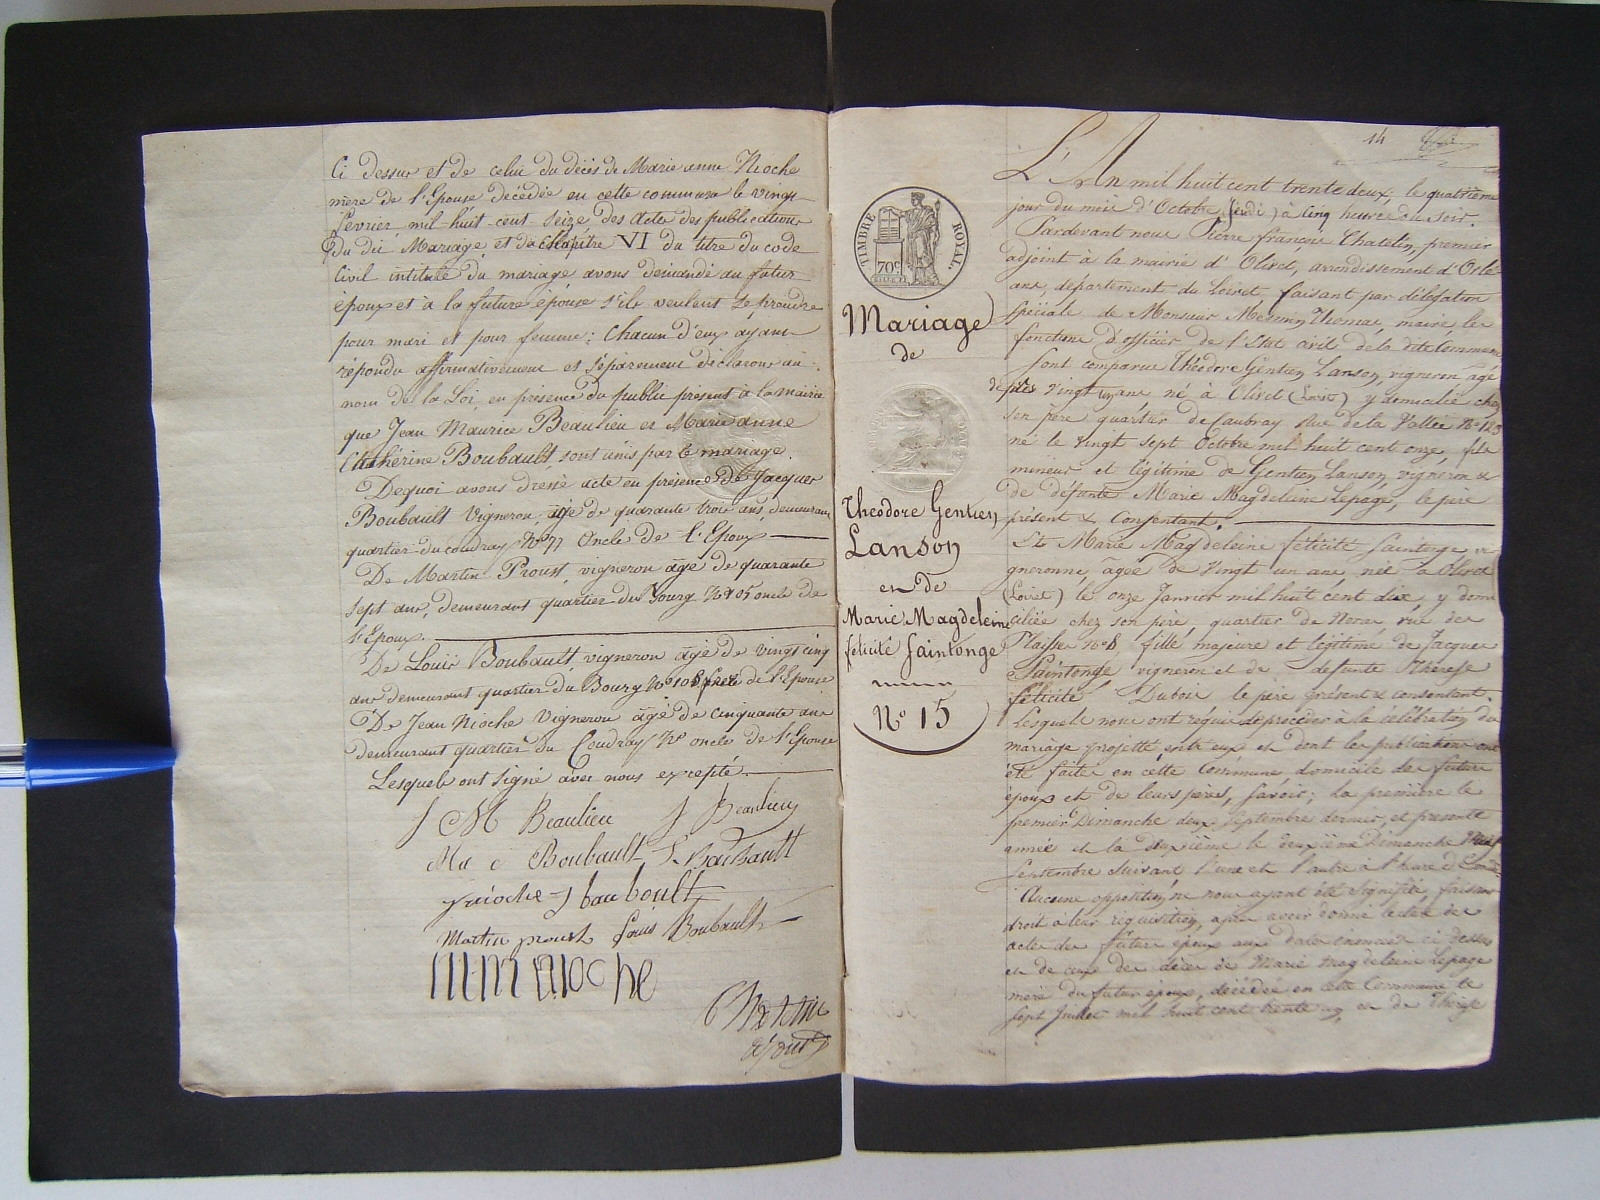 Ci dessus et de celui du décès de Marie anne Nioche
mère de l'Epouse décédée en cette commune le vingt
février mil-huit-cent-seize des actes des publications
du dit Mariage et du Chapitre VI du titre du code
Civil intitulé du mariage avons demandé au futur
époux et à la future épouse s'ils veulent se prendre
pour mari et pour femme; Chacun d'eux ayant
répondu affirmativement et séparément déclarons au
nom de la Loi, en présence du public présent à la mairie
que Jean Maurice Beaulieu et Marie anne
Cathérine Boubault, sont unis par le mariage.
Dequoi avons dressé acte en présence de Jacques
Boubault Vigneron, âgé de quarante trois ans, demeurant
quartier du coudray No 77 Oncle de l'Epoux
De Martin Proust, vigneron âgé de quarante
sept ans, demeurant quartier du Bourg No 105 oncle de
l'Epoux.
De Louis Boubault, vigneron âgé de vingt cinq
ans demeurant quartier du Bourg No 108 frère de l'Epouse
De Jean Nioche Vigneron âgé de cinquante ans
demeurant quartier du Coudray No oncle de l'Epouse
Lesquels ont signé avec nous excepté.
J M Beaulieu J Beaulieu
M a c Boubault J. Boubault
J nioche J bouboult
Martin proust Louis Boubault
nioche
adjoint
TIMBRE ROYAL.
70c
Mariage
de
Théodore Gentien
Lanson
et de
Marie Magdeleine
félicité Saintonge
No 15
14
L'An mil huit cent trente deux, le quatrième
jour du mois d'Octobre, (jeudi) à Cinq heures du soir.
Pardevant nous Pierre françois Chatelin, premier
adjoint à la mairie d'Olivet, arrondissement d'Orlé
ans, département du Loiret, faisant par délégation
spéciale de Monsieur Mesmin Thomas, maire, les
fonctions d'officier de l'Etat civil de la dite Commune
Sont comparus Théodore Gentien Lanson, vigneron âgé
de près vingt un ans né à Olivet (Loiret) y domicilié chez
son père quartier de Caubray Rue de la Vallée No 123
né le vingt sept Octobre mil huit cent onze, fils
mineur et légitime de Gentien Lanson, vigneron &
de défunte Marie Magdeleine Lepage, le père
présent & Consentant.
Et Marie Magdeleine félicité Saintonge vi
gneronne, âgée de vingt un ans, née à Olivet
(Loiret) le onze Janvier mil huit cent dix, y domi
ciliée chez son père, quartier de Noras, rue de
Plaisse No 8, fille majeure et légitime de Jacques
Saintonge vigneron et de défunte Thérèse
félicité Dubois le père présent & consentant.
Lesquels nous ont requis de procéder à la célébration du
mariage projetté entre eux et dont les publications ont
été faites en cette Commune domicile des futurs
époux et de leurs pères, savoir; la première le
premier Dimanche deux Septembre dernier, et présente
année et la deuxième le deuxième Dimanche neuf
Septembre suivant l'une et l'autre à l'heure de
Aucune opposition ne nous ayant été signifiée, faisant
droit à leur réquisition, après avoir donné lecture des
actes des futurs époux aux dates énoncées ci dessus
et de ceux des décès de Marie Magdeleine Lepage
mère du futur époux, décédée en cette Commune le
sept Juillet mil huit cent trente un, et de Thérèse